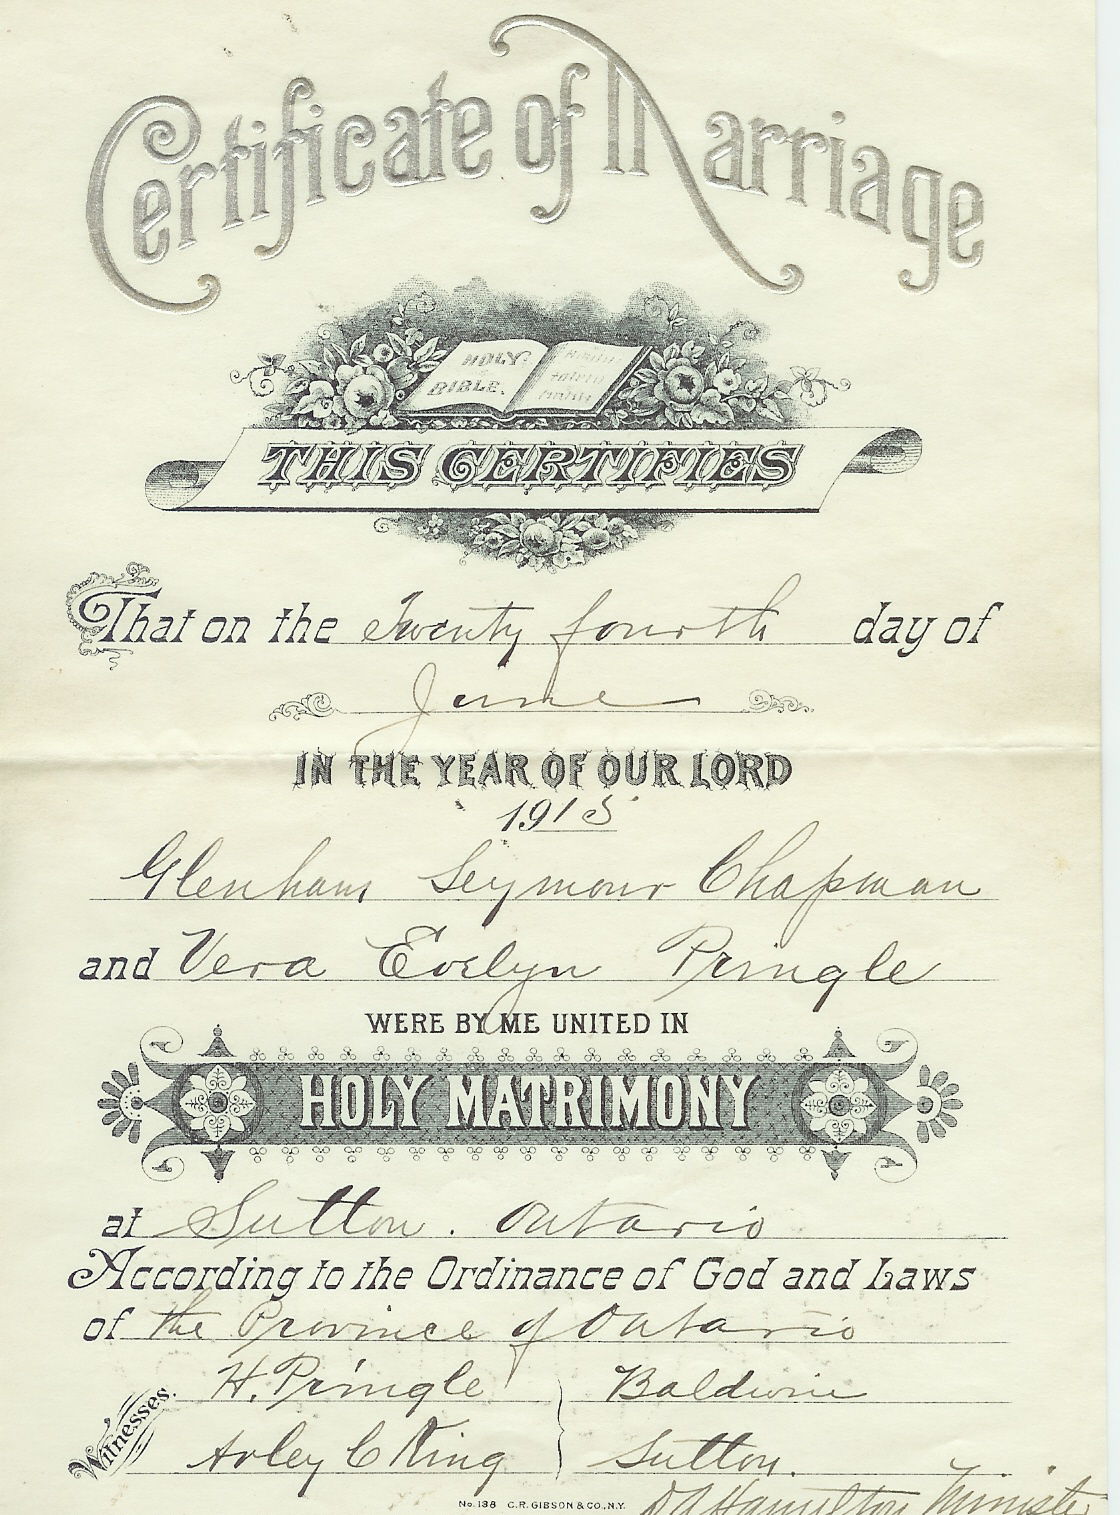 Certificate of Marriage
HOLY
BIBLE.
THIS CERTIFIES
That on the Twenty fourth day of
June
IN THE YEAR OF OUR LORD
1915
Glenham Seymour Chapman
and Vera Evelyn Pringle
WERE BY ME UNITED IN
HOLY MATRIMONY
at Sutton. Ontario
According to the Ordinance of God and Laws
of the Province of Ontario
Witnesses. H. Pringle } Baldwin
Arley C King } Sutton.
No. 138 C.R. GIBSON & CO., N.Y.
Hamilton Minister